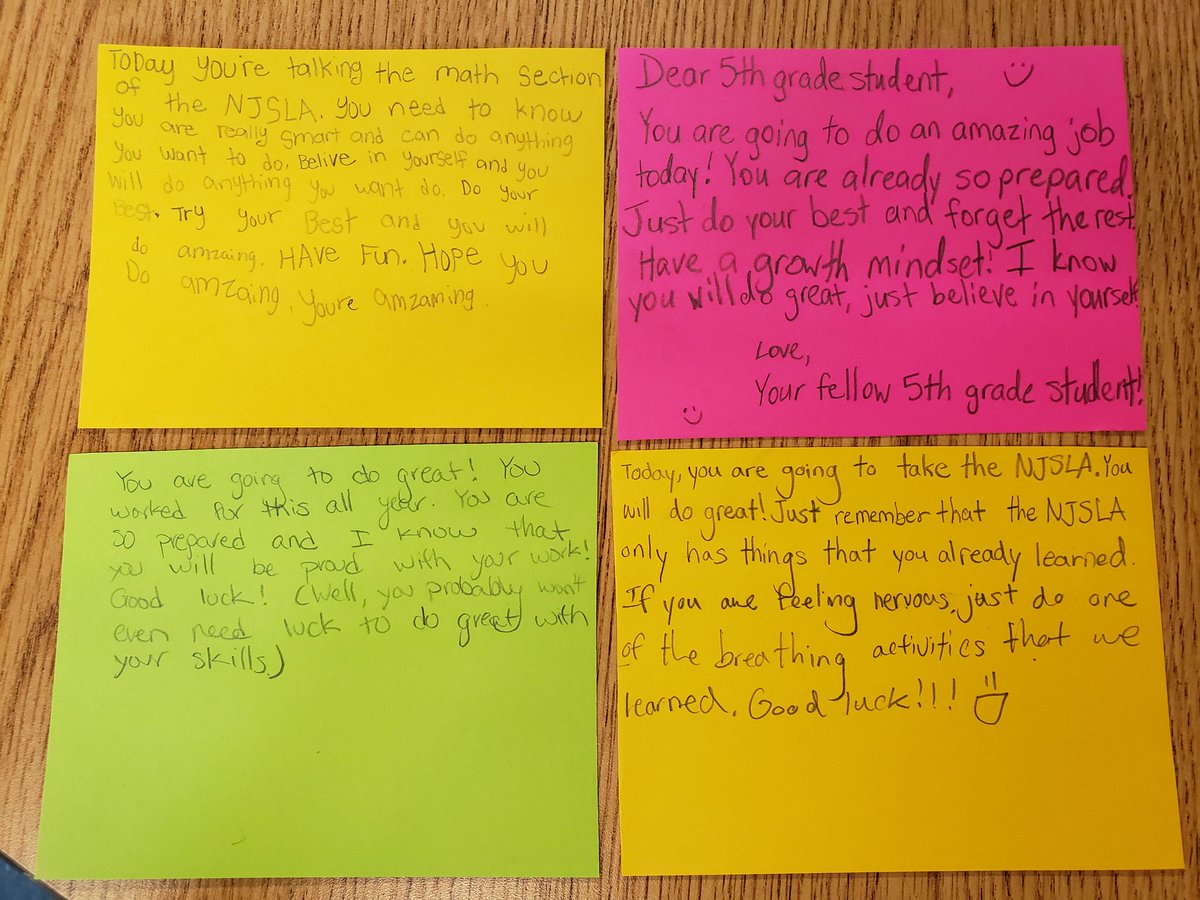 Today you're talking the math section
of the NJSLA. You need to know
you are really smart and can do anything
you want to do. Belive in yourself and you
will do anything you want do. Do your
Best. Try your Best and you will
do amzaing. HAve Fun. Hope you
Do amzaing. You're amzaming.
Dear 5th grade student,
You are going to do an amazing job
today! You are already so prepared.
Just do your best and forget the rest.
Have a growth mindset! I know
you will do great, just believe in yourself
Love,
Your fellow 5th grade student!
You are going to do great! You
worked for this all year. You are
so prepared and I know that
you will be proud with your work!
Good luck! (Well, you probably won't
even need luck to do great with
your skills)
Today, you are going to take the NJSLA. You
will do great! Just remember that the NJSLA
only has things that you already learned.
If you are feeling nervous, just do one
of the breathing activities that we
learned. Good luck!!!